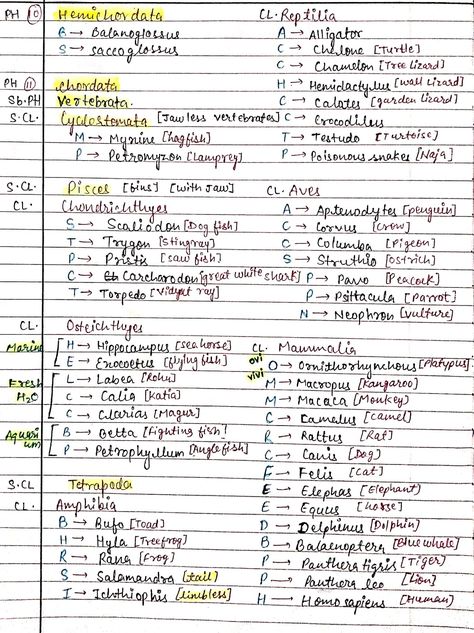 PH 10 Hemichordata
B → Balanoglossus
S → saccoglossus
PH 11 chordata
Sb.PH Vertebrata.
S.CL. Cyclostomata [Jawless vertebrates]
M → Myxine [hagfish]
P → Petromyzon [Lamprey]
S.CL. Pisces [bins] [with jaw]
CL. Chondrichthyes
S → Scoliodon [Dog fish]
T → Trygon [Stingray]
P → Pristis [saw fish]
C → Carcharodon [great white shark]
T → Torpedo [Vidyut ray]
CL. Osteichthyes
Marine H → Hippocampus [sea horse]
E → Exocoetus [flying fish]
Fresh H₂O L → Labea [Rohu]
C → Calia [Katla]
C → Clarias [Magur]
Aquarium B → Betta [Fighting fish]
P → Petrophyllum [Angle fish]
S.CL Tetrapoda
CL. Amphibia
B → Bufo [Toad]
H → Hyla [Treefrog]
R → Rana [Frog]
S → Salamandra (tail)
I → Ichthiophis [limbless]
CL. Reptilia
A → Alligator
C → Chelone [Turtle]
C → Chamelon [Tree lizard]
H → Hemidactylus [wall lizard]
C → Calotes [garden lizard]
C → Crocodilus
T → Testudo [Turtoise]
P → Poisonous snakes [Naja]
CL. Aves
A → Aptenodytes [penguin]
C → Corvus [Crow]
C → Columba [Pigeon]
S → Struthio [ostrich]
P → Pavo [Peacock]
P → Psittacula [Parrot]
N → Neophron [vulture]
CL. Mammalia
ovi O → Ornithorhynchous [Platypus]
vivi M → Macropus [Kangaroo]
M → Macaca [Monkey]
C → Camelus [Camel]
R → Rattus [Rat]
C → Canis [Dog]
F → Felis [Cat]
E → Elephas [Elephant]
E → Equus [horse]
D → Delphinus [Dolphin]
B → Balaenoptera [Blue whale]
P → Panthera tigris [Tiger]
P → Panthera leo [Lion]
H → Homo sapiens [Human]